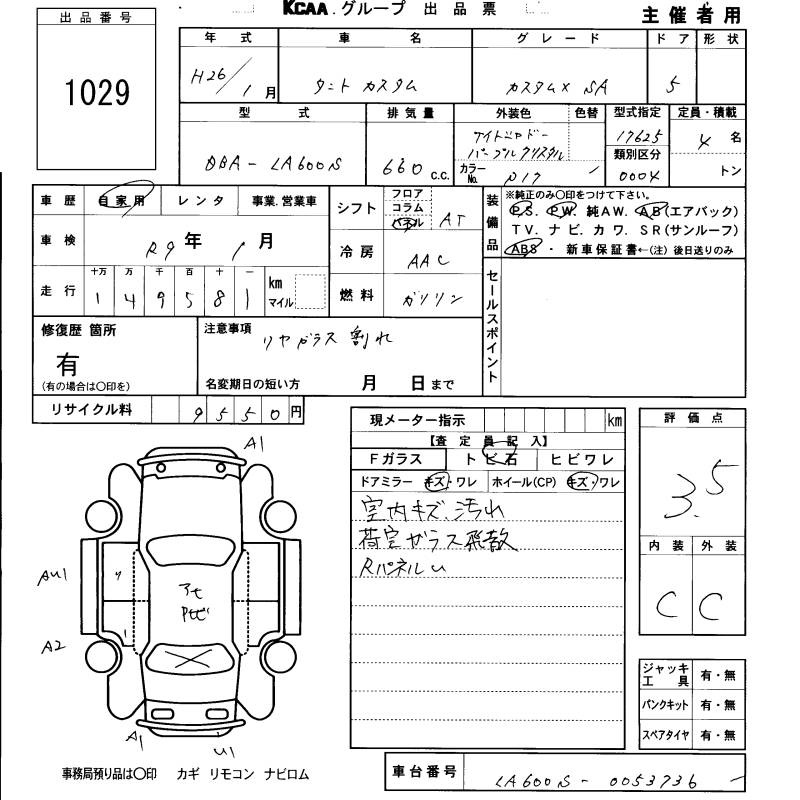 KCAA.グループ 出品票
主催者用
出品番号
1029
年式 車名 グレード ドア 形状
H26/1月 タント カスタム カスタムX SA 5
型式 排気量 外装色 色替 型式指定 定員・積載
DBA-LA600S 660 c.c. ナイトシャドー パープルクリスタル 17625 4 名
類別区分
カラーNo. P19 / 0004 トン
車歴 自家用 レンタ 事業.営業車
シフト フロア コラム パネル AT
装備品 ※純正のみ〇印をつけて下さい。
PS. PW. 純AW. AB(エアバック)
TV. ナビ. カワ. SR(サンルーフ)
ABS ・ 新車保証書←(注) 後日送りのみ
車検 R9年 1月
冷房 AAC
走行 十万 万 千 百 十 一 km マイル
149581
燃料 ガソリン
セールスポイント
修復歴 箇所
有
(有の場合は〇印を)
注意事項 リヤガラス 割れ
名変期日の短い方 月 日まで
リサイクル料 9550円
現メーター指示 km
【査定員記入】
Fガラス トビ石 ヒビワレ
ドアミラー キズ・ワレ ホイール(CP) キズ・ワレ
室内キズ.汚れ
荷室ガラス飛散
RパネルU
評価点
3.5
内装 外装
C C
A1
AU1
A2
アセ
Pセビ
A1
U1
ジャッキ工具 有・無
パンクキット 有・無
スペアタイヤ 有・無
事務局預り品は〇印 カギ リモコン ナビロム
車台番号 LA600S-0053736